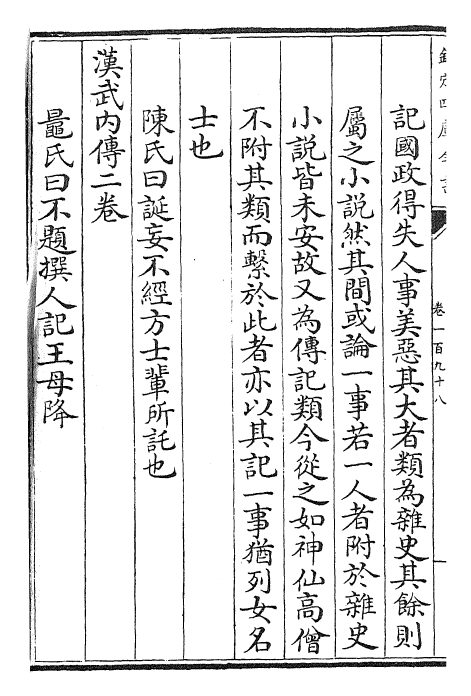 欽定四庫全書
卷一百九十八
記國政得失人事美惡其大者類為雜史其餘則
屬之小説然其間或論一事若一人者附於雜史
小説皆未安故又為傳記類今從之如神仙髙僧
不附其類而繫於此者亦以其記一事猶列女名
士也
陳氏曰誕妄不經方士輩所託也
漢武內傳二卷
鼂氏曰不題撰人記王母降